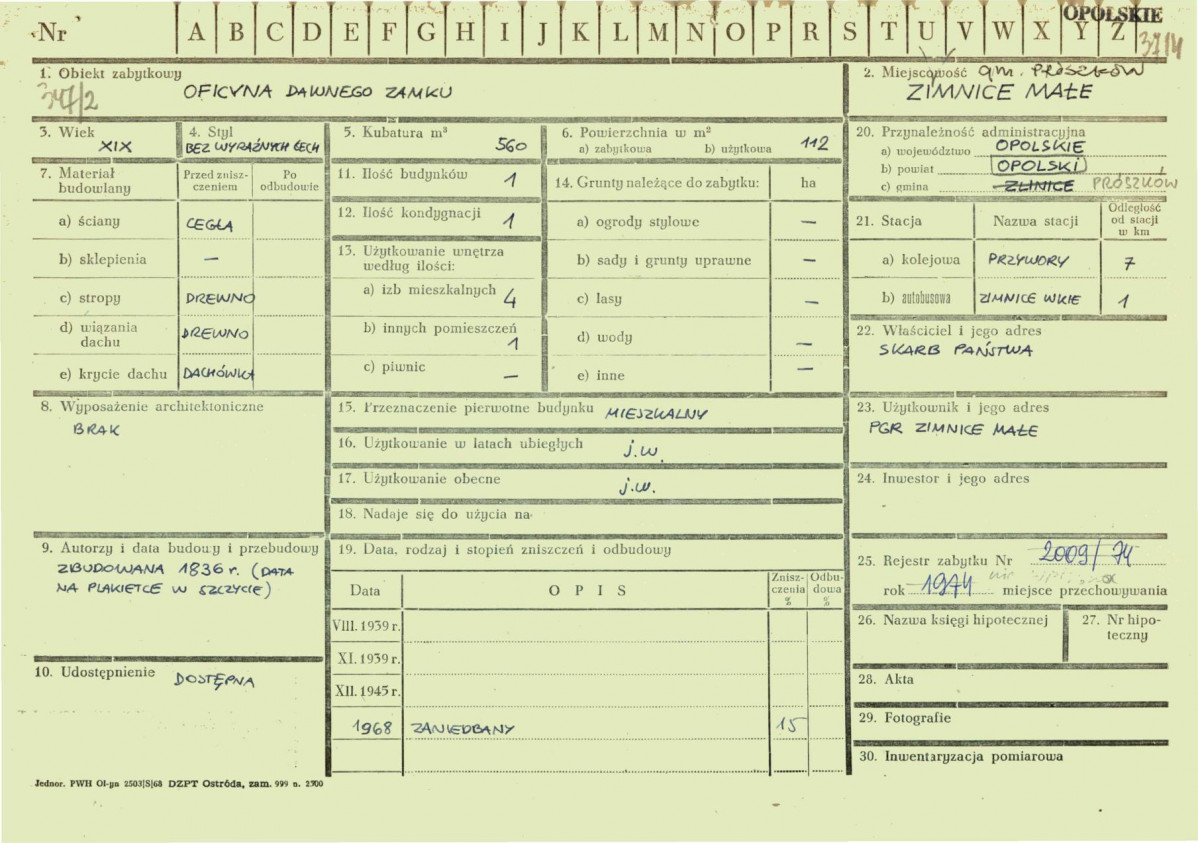 OPOLSKIE
Nr A B C D E F G H I J K L M N O P R S T U V W X Y Z
37/4
1. Obiekt zabytkowy
347/2
OFICYNA DAWNEGO ZAMKU
2. Miejscowość gm. PRÓSZKÓW
ZIMNICE MAŁE
3. Wiek
XIX
4. Styl
BEZ WYRAŹNYCH CECH
5. Kubatura m³
560
6. Powierzchnia w m²
a) zabytkowa b) użytkowa 112
20. Przynależność administracyjna
a) województwo OPOLSKIE
b) powiat OPOLSKI
c) gmina ZLINICE PRÓSZKÓW
7. Materiał budowlany
Przed zniszczeniem
Po odbudowie
a) ściany CEGŁA
b) sklepienia —
c) stropy DREWNO
d) wiązania dachu DREWNO
e) krycie dachu DACHÓWKA
11. Ilość budynków 1
12. Ilość kondygnacji 1
13. Użytkowanie wnętrza
według ilości:
a) izb mieszkalnych 4
b) innych pomieszczeń
1
c) piwnic —
14. Grunty należące do zabytku: ha
a) ogrody stylowe —
b) sady i grunty uprawne —
c) lasy —
d) wody —
e) inne —
21. Stacja Nazwa stacji
Odległość
od stacji
w km
a) kolejowa PRZYWORY 7
b) autobusowa ZIMNICE WKIE 1
22. Właściciel i jego adres
SKARB PAŃSTWA
8. Wyposażenie architektoniczne
BRAK
15. Przeznaczenie pierwotne budynku MIESZKALNY
16. Użytkowanie w latach ubiegłych j.w.
17. Użytkowanie obecne j.w.
18. Nadaje się do użycia na
23. Użytkownik i jego adres
PGR ZIMNICE MAŁE
24. Inwestor i jego adres
9. Autorzy i data budowy i przebudowy
ZBUDOWANA 1836 r. (DATA
NA PLAKIETCE W SZCZYCIE)
10. Udostępnienie DOSTĘPNA
19. Data, rodzaj i stopień zniszczeń i odbudowy
Data OPIS
Zniszczenia
%
Odbudowa
%
VIII. 1939 r.
XI. 1939 r.
XII. 1945 r.
1968 ZANIEDBANY 15
25. Rejestr zabytku Nr 2009/74
rok 1974 miejsce przechowywania
26. Nazwa księgi hipotecznej
27. Nr hipoteczny
28. Akta
29. Fotografie
30. Inwentaryzacja pomiarowa
Jednor. PWH Ol-yn 2503|S|68 DZPT Ostróda, zam. 999 n. 2700